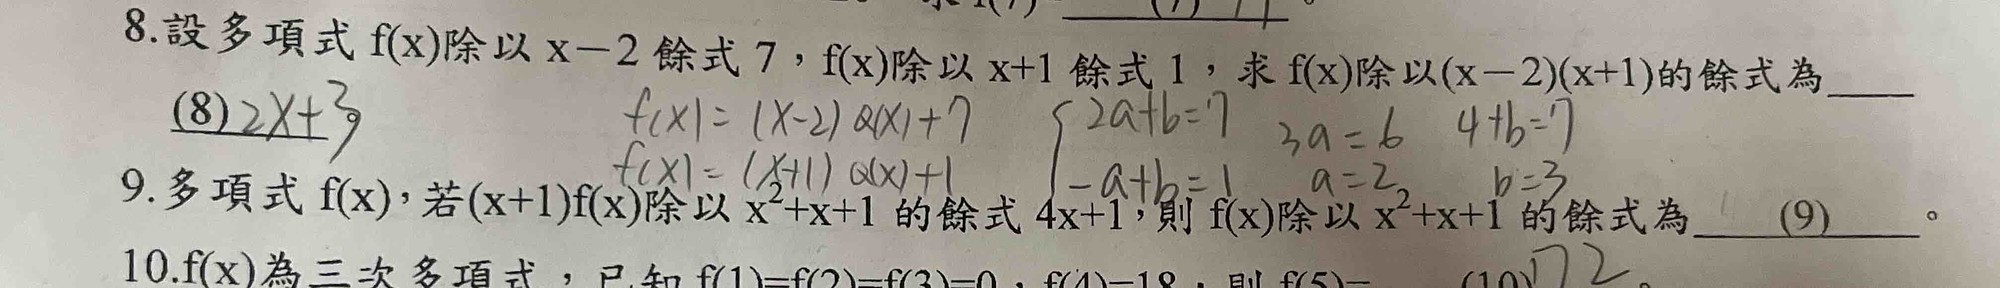 8.設多項式 f(x)除以 x－2 餘式 7，f(x)除以 x+1 餘式 1，求 f(x)除以(x－2)(x+1)的餘式為____
(8) 2x+3。
f(x) = (x-2) Q(x)+7
f(x) = (x+1) Q(x)+1
{ 2a+b=7
-a+b=1
3a=6
a=2
4+b=7
b=3
9.多項式 f(x)，若(x+1)f(x)除以 x²+x+1 的餘式 4x+1，則 f(x)除以 x²+x+1 的餘式為____(9)____。
10.f(x)為三次多項式，已知 f(1)=f(2)=f(3)=0，f(4)=18，則 f(5)=__(10)72。